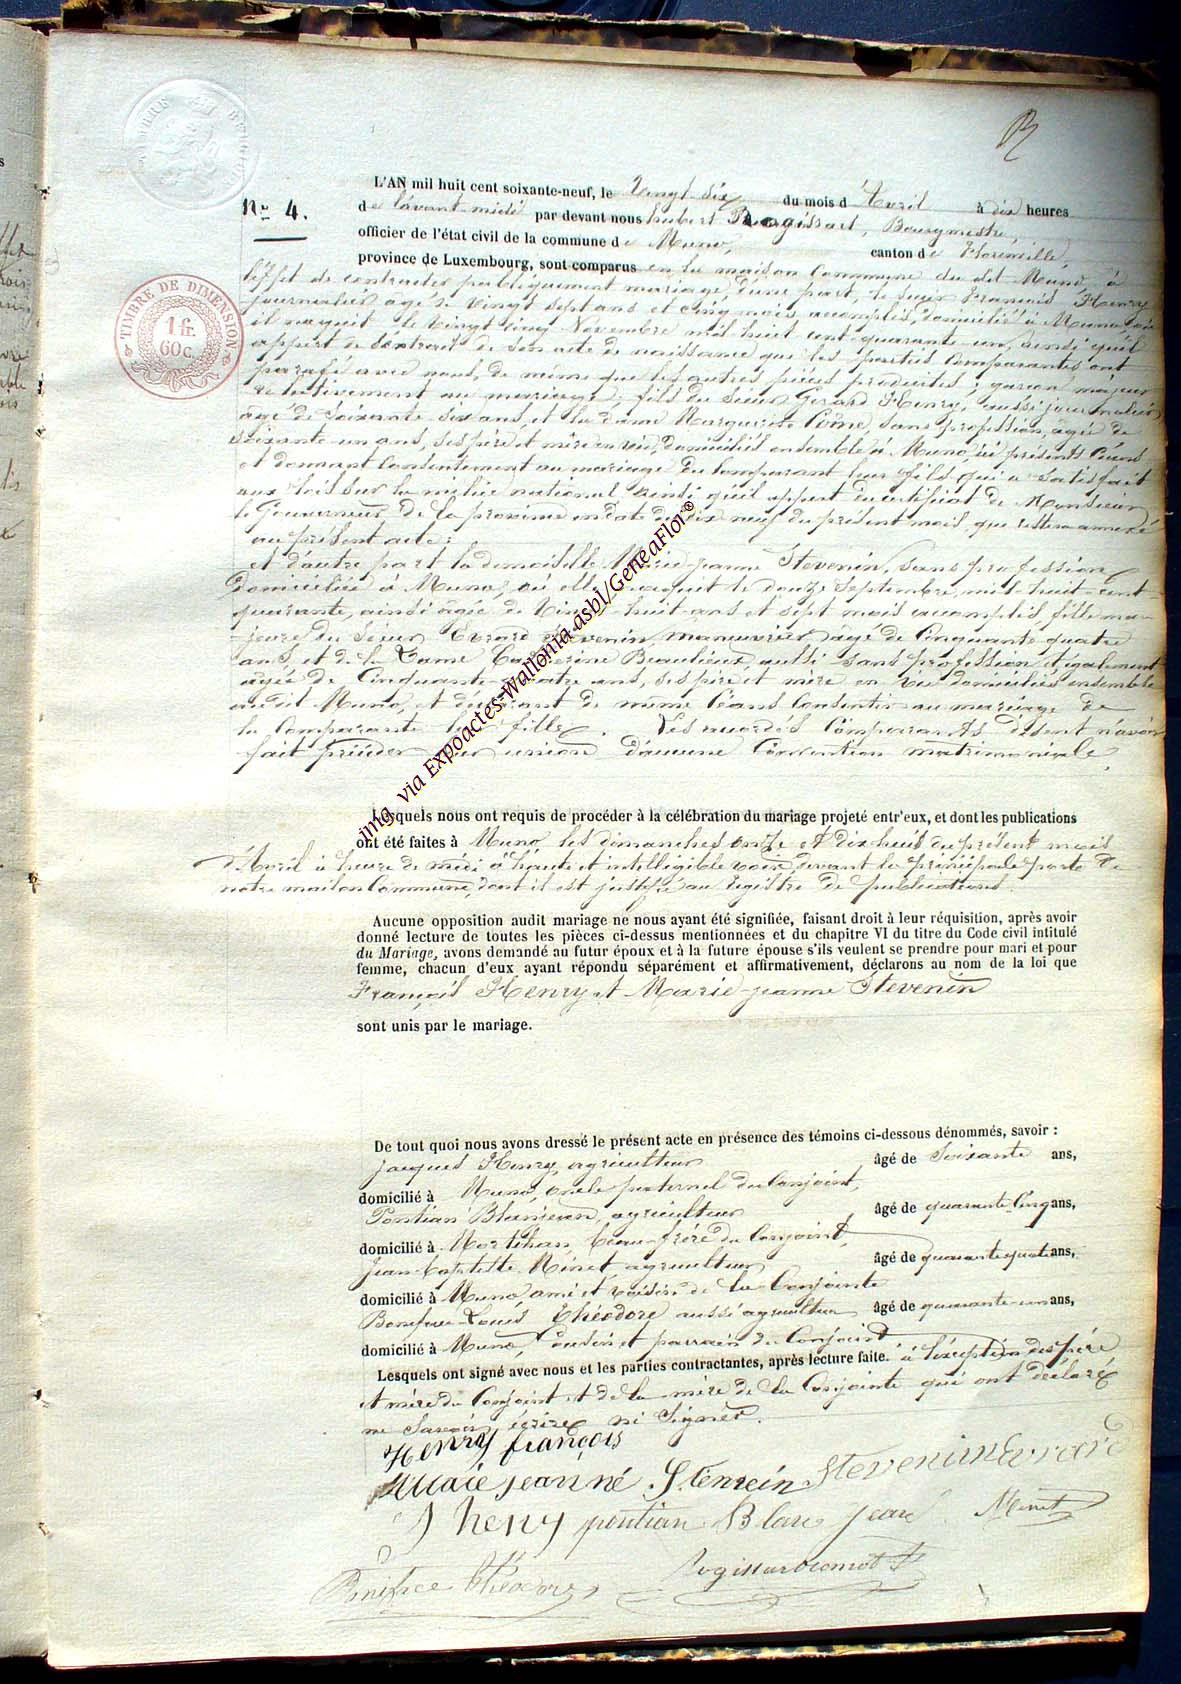 TIMBRE BELGIQUE
N° 4.
TIMBRE DE DIMENSION
1 fr.
60 c.
L'AN mil huit cent soixante-neuf, le Vingt-six du mois d'Avril à dix heures
de l'avant-midi par devant nous hubert Rogissart, Bourgmestre,
officier de l'état civil de la commune de Muno, canton de Florenville,
province de Luxembourg, sont comparus en la maison Commune du dit Muno, à
l'effet de contracter publiquement mariage, d'une part, le sieur François Henry
journalier âgé de Vingt sept ans et cinq mois accomplis, domicilié à Muno où
il naquit le Vingt cinq Novembre mil huit cent quarante un, ainsi qu'il
appert de l'extrait de son acte de naissance que les parties Comparantes ont
parafé avec nous, de même que les autres pièces produites; garçon majeur
relativement au mariage; fils du sieur Gerard Henry, aussi journalier,
âgé de soixante six ans, et de la dame Marguerite Pône, sans profession, âgée de
soixante-un ans, ses père et mère en vie, domiciliés ensemble à Muno, ici présents Céans
et donnant Consentement au mariage du Comparant leur fils qui a satisfait
aux lois sur la milice national, ainsi qu'il appert du certificat de Monsieur
le Gouverneur de la province en date du dix neuf du présent mois, qui restera annexé
au présent acte;
et d'autre part la demoiselle Marie-jeanne Stevenin, sans profession,
domiciliée à Muno, où elle naquit le douze Septembre mil-huit-cent-
quarante, ainsi âgée de Vingt-huit-ans et sept mois accomplis, fille ma-
jeure du sieur Evrard Stevenin, manuvrier, âgé de Cinquante quatre
ans, et de la Dame Catherine Beaulieux, aussi sans profession et également
âgée de Cinquante-quatre ans, ses père et mère en vie domiciliés ensemble
au dit Muno, et déclarant de même Céans Consentir au mariage de
la Comparante leur fille. Les Comparants disent n'avoir
fait précéder leur union d'aucune Convention matrimoniale.
Lesquels nous ont requis de procéder à la célébration du mariage projeté entr'eux, et dont les publications
ont été faites à Muno, les dimanches onze et dix huit du présent mois
d'Avril à heure de midi à haute et intelligible voix devant la principale porte de
notre maison Commune, dont il est justifié au registre de publications.
Aucune opposition audit mariage ne nous ayant été signifiée, faisant droit à leur réquisition, après avoir
donné lecture de toutes les pièces ci-dessus mentionnées et du chapitre VI du titre du Code civil intitulé
du Mariage, avons demandé au futur époux et à la future épouse s'ils veulent se prendre pour mari et pour
femme, chacun d'eux ayant répondu séparément et affirmativement, déclarons au nom de la loi que
François Henry et Marie-jeanne Stevenin
sont unis par le mariage.
De tout quoi nous avons dressé le présent acte en présence des témoins ci-dessous dénommés, savoir :
Jacques Henry, agriculteur âgé de Soixante ans,
domicilié à Muno, oncle paternel du Conjoint,
Pontian agriculteur âgé de quarante-Cinq ans,
domicilié à Mortehan, beau-frère du Conjoint,
Jean-baptiste Minet, agriculteur âgé de quarante-quatre ans,
domicilié à Muno, ami et voisin de la Conjointe
Boniface-Louis Théodore aussi agriculteur âgé de quarante-un ans,
domicilié à Muno, Cousin et parrain du Conjoint
Lesquels ont signé avec nous et les parties contractantes, après lecture faite. à l'exception des père
et mère du Conjoint et de la mère de la Conjointe qui ont déclaré
ne Savoir écrire ni Signer.
Henry françois
Marie jeanne Stenvein Stevenin Evrard
J heny pontian Blan Jean Minet
Boniface théodore
img via Expoactes-Wallonia asbl/GeneaFlor®